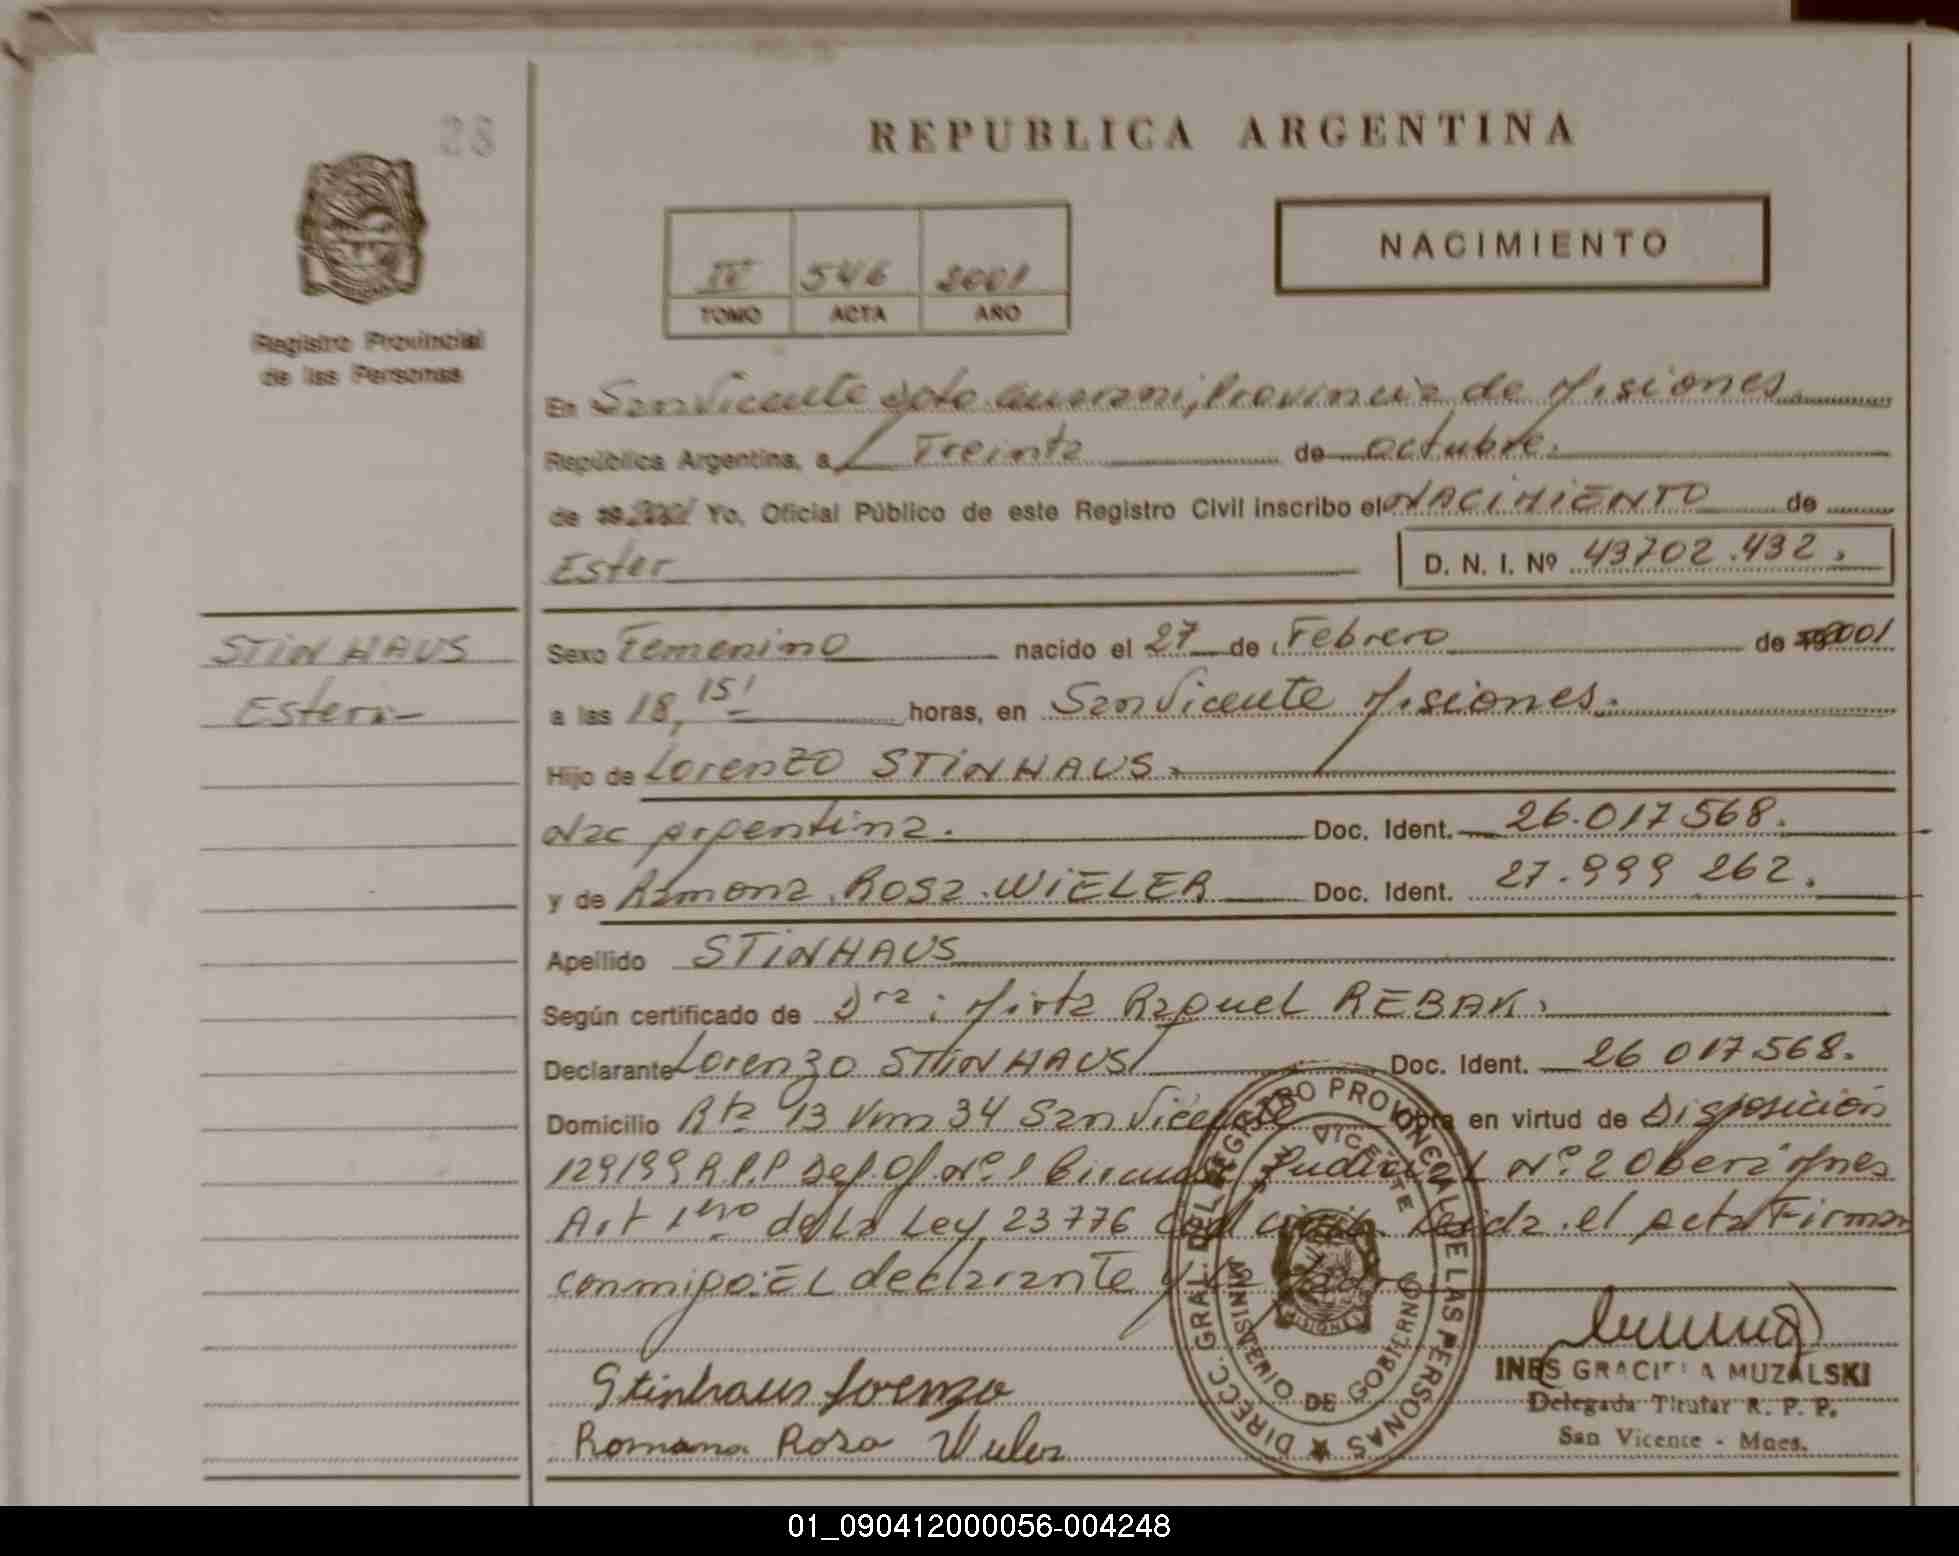 28
REPUBLICA ARGENTINA
NACIMIENTO
IV 546 2001
TOMO ACTA AÑO
Registro Provincial
de las Personas
En San Vicente Dpto Guarani, Provincia de Misiones
República Argentina, a Treinta de octubre.
de 19 2001 Yo, Oficial Público de este Registro Civil inscribo el NACIMIENTO de
Ester D. N. I. Nº 43702.432.
STINHAUS
Ester.-
Sexo Femenino nacido el 27 de Febrero de 19 2001
a las 18,15' horas, en San Vicente Misiones.
Hijo de Lorenzo STINHAUS.
Nac Argentina. Doc. Ident. 26.017568.
y de Ramona Rosa WIELER Doc. Ident. 27.999 262.
Apellido STINHAUS
Según certificado de Dra: Mirta Raquel REBAK.
Declarante Lorenzo STINHAUS Doc. Ident. 26 017.568.
Domicilio Rta 13 Km 34 San Vicente Obra en virtud de Disposición
129/99 R.P.P Def. Of. Nº 1 Judicial Nº 2 Obera Mnes
Art 1ero de La Ley 23776 Leida el acta Firman
conmigo: EL declarante y La Madre
Stinhaus Lorenzo
Romana Rosa Wieler
DIRECC. GRAL. DEL REGISTRO PROVINCIAL DE LAS PERSONAS
SAN VICENTE
MINISTERIO DE GOBIERNO
MISIONES
INES GRACIELA MUZALSKI
Delegada Titular R. P. P.
San Vicente - Mnes.
01_090412000056-004248